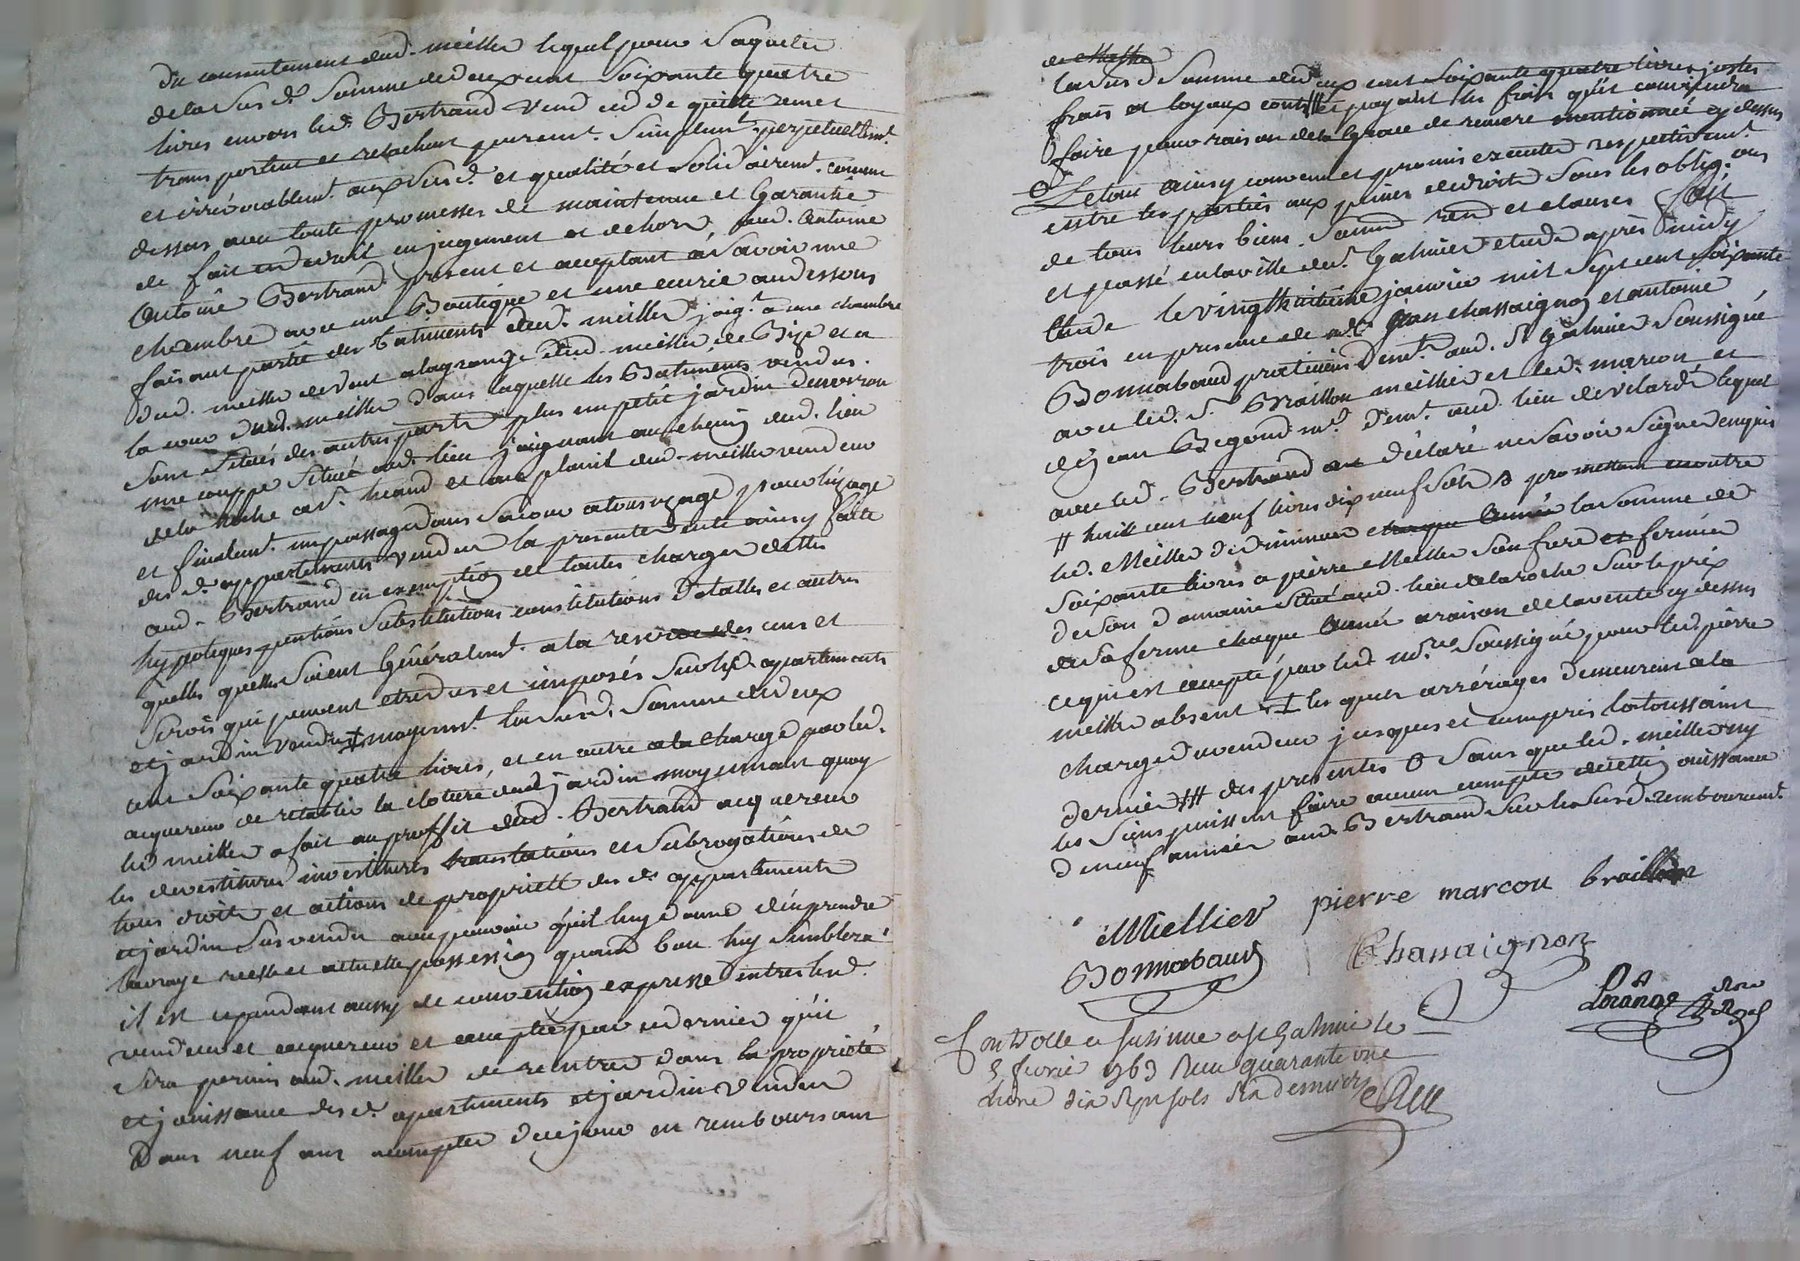 du consentement dud. meillier lequel pour s'aquiter
de la sus d. somme de deux cent soixante quatre
livres envers led. Bertrand vend cede quitte remet
transportent et relachent purem.t simplem.t perpetuellem.t
et irrévocablem.t aux susd. et qualité et solidairem.t comme
dessus avec toute promesses de maintenue et garantie
de fait et de droit en jugement et dehors aud. Antoine
Antoine Bertrand present et acceptant a savoir une
chambre avec une Boutique et une ecurie au dessous
faisant partie des batiments dud. meillier joig.t a une chambre
dud. meillier de vent a la grange dud. meillier de Bize et a
la cour dud. meillier dans laquelle les Batiments vendus
sont situés des autres parts plus un petit jardin d'environ
une couppe situé aud. lieu joignant au chemin dud. lieu
de la Roche et au plus dud. meillier vendeur
et finalem.t un passage dans sa cour a tous usage pour l'usage
des d. appartements vendus la presente vente ainsy faite
aud. Bertrand en exemption de toutes charges dettes
hypoteques pentions substitutions constitutions d'etalles et autres
quelles quelles soient generalem.t a la reserve des cens et
servis qui peuvent etre dus et imposés sur lesd. apartements
et jardin vendus moyenn.t la susd. somme de deux
cent soixante quatre livres, et en outre a la charge par led.
acquereur de retablir la cloture dud. jardin moyennant quoy
led meillier a fait au proffit dud. Bertrand acquereur
les devestitures investitures translations et subrogations de
tous droits et actions de proprieté des d. appartements
et jardin susvendu avec pouvoir qu'il luy donne d'en prendre
la vraye reelle et actuelle possession quand bon luy semblera
il est cependant aussy de convention expresse entre led.
vendeur et acquereur et accepté par ce dernier qu'il
sera permis aud. meillier de rentrer dans la proprieté
et jouissance des d. apartements et jardin vendu
Dans neuf ans a compter de ce jour en remboursant
la susd. somme de deux cent soixante quatre livres justes
frais et loyaux couts et payant les frais qu'il conviendra
faire pour raison de la grace de remere mentionnée cy dessus
Le tout ainsy convenu et promis executer respectivem.t
entre les parties aux peines de droit sous les oblig.ons
de tous leurs biens soumis rend et clauses fait
et passé en la ville de S.t Galmier etude après midy
le vingt huitième janvier mil sept cent soixante
trois en presence de m.e jean chassaignon et antoine
Bonnabaud praticiens dem.t aud. S.t Galmier soussigné
avec led. S.r Braillon meillier et led. marcou et
de jean Begond m.d dem.t aud. lieu de velard lequel
avec led. Bertrand ont déclaré ne savoir signer enquis
huit cent neuf livres dix neuf sols promettant en outre
led. Meillier de diminuer chaque année la somme de
soixante livres a pierre Meillier son frere et fermier
de son domaine situé aud. lieu de la roche sur le prix
de sa ferme chaque année a raison de la vente cy dessus
ce qui est accepté par led no.re soussigné pour led pierre
meillier absent les quels arrérages demeurent a la
charge du vendeur jusques et compris la toussaint
dernier des presentes sans que led. meillier ny
les siens puissent faire aucun compte de cette jouissance
de neuf années aud. Bertrand sur la susd remboursem.t
Miellier pierre marcou braillon
Bonnabaud Chassaignon
Controllé et insinué a St Galmier le
3 fevrier 1763 Reçu quarante une
livre dix sept sols six deniers